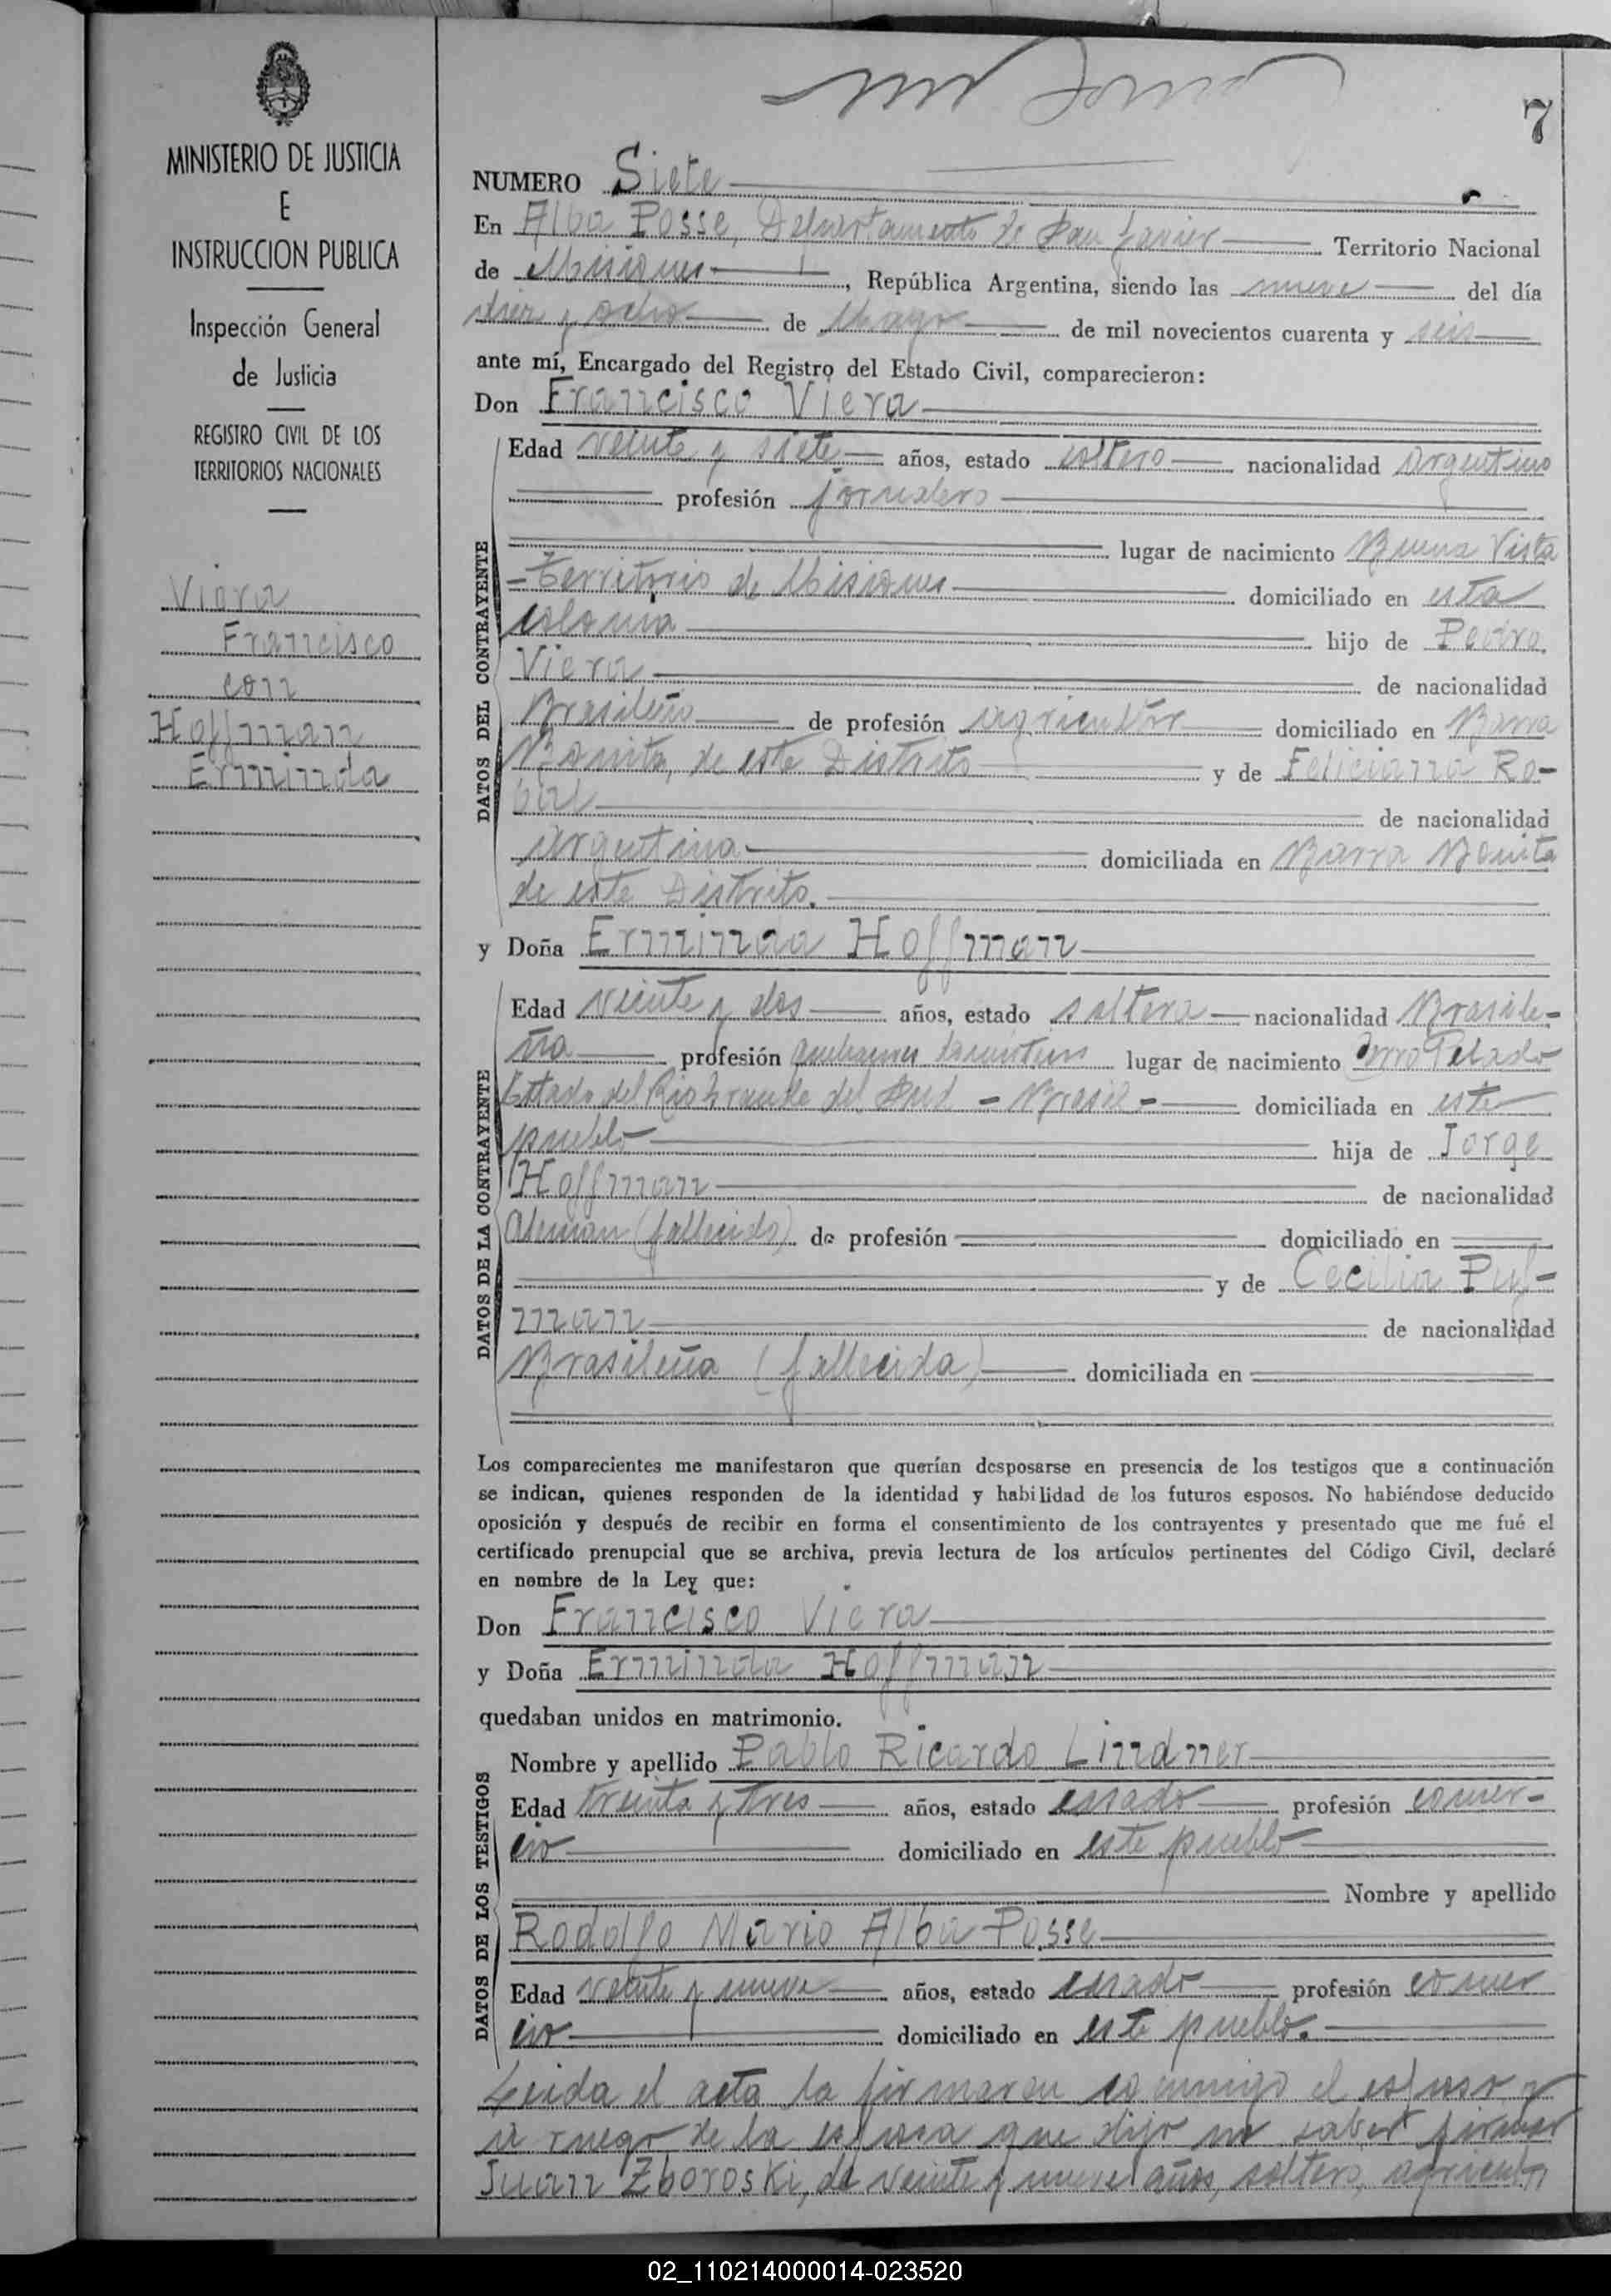 7
MINISTERIO DE JUSTICIA
E
INSTRUCCION PUBLICA
Inspección General
de Justicia
REGISTRO CIVIL DE LOS
TERRITORIOS NACIONALES
Viera
Francisco
con
Hoffman
Erminda
NUMERO Siete
En Alba Posse, Departamento de San Javier Territorio Nacional
de Misiones, República Argentina, siendo las nueve del día
diez y ocho de Mayo de mil novecientos cuarenta y seis
ante mí, Encargado del Registro del Estado Civil, comparecieron:
Don Francisco Viera
DATOS DEL CONTRAYENTE
Edad veinte y siete años, estado soltero nacionalidad Argentino
profesión jornalero
lugar de nacimiento Buena Vista
- Territorio de Misiones domiciliado en esta
colonia hijo de Pedro
Viera de nacionalidad
Brasileño de profesión agricultor domiciliado en Barra
Bonita, de este Distrito y de Feliciana Ro-
de nacionalidad
argentina domiciliada en Barra Bonita
de este Distrito.
y Doña Erminda Hoffman
DATOS DE LA CONTRAYENTE
Edad veinte y dos años, estado soltera nacionalidad Brasile-
ña profesión quehaceres domésticos lugar de nacimiento Cerro Pelado
Estado del Rio Grande del Sud - Brasil - domiciliada en este
pueblo hija de Jorge
Hoffman de nacionalidad
Aleman (fallecido) de profesión domiciliado en
y de Cecilia Puf-
man de nacionalidad
Brasileña (fallecida) domiciliada en
Los comparecientes me manifestaron que querían desposarse en presencia de los testigos que a continuación
se indican, quienes responden de la identidad y habilidad de los futuros esposos. No habiéndose deducido
oposición y después de recibir en forma el consentimiento de los contrayentes y presentado que me fué el
certificado prenupcial que se archiva, previa lectura de los artículos pertinentes del Código Civil, declaré
en nombre de la Ley que:
Don Francisco Viera
y Doña Erminda Hoffman
quedaban unidos en matrimonio.
DATOS DE LOS TESTIGOS
Nombre y apellido Pablo Ricardo Lindner
Edad treinta y tres años, estado casado profesión comer-
cio domiciliado en este pueblo
Nombre y apellido
Rodolfo Mario Alba Posse
Edad veinte y nueve años, estado casado profesión comer
cio domiciliado en este pueblo.
Leida el acta la firmaron conmigo el esposo y
a ruego de la esposa que dijo no saber firmar
Juan Zboroski, de veinte y nueve años, soltero, agricultor
02_110214000014-023520